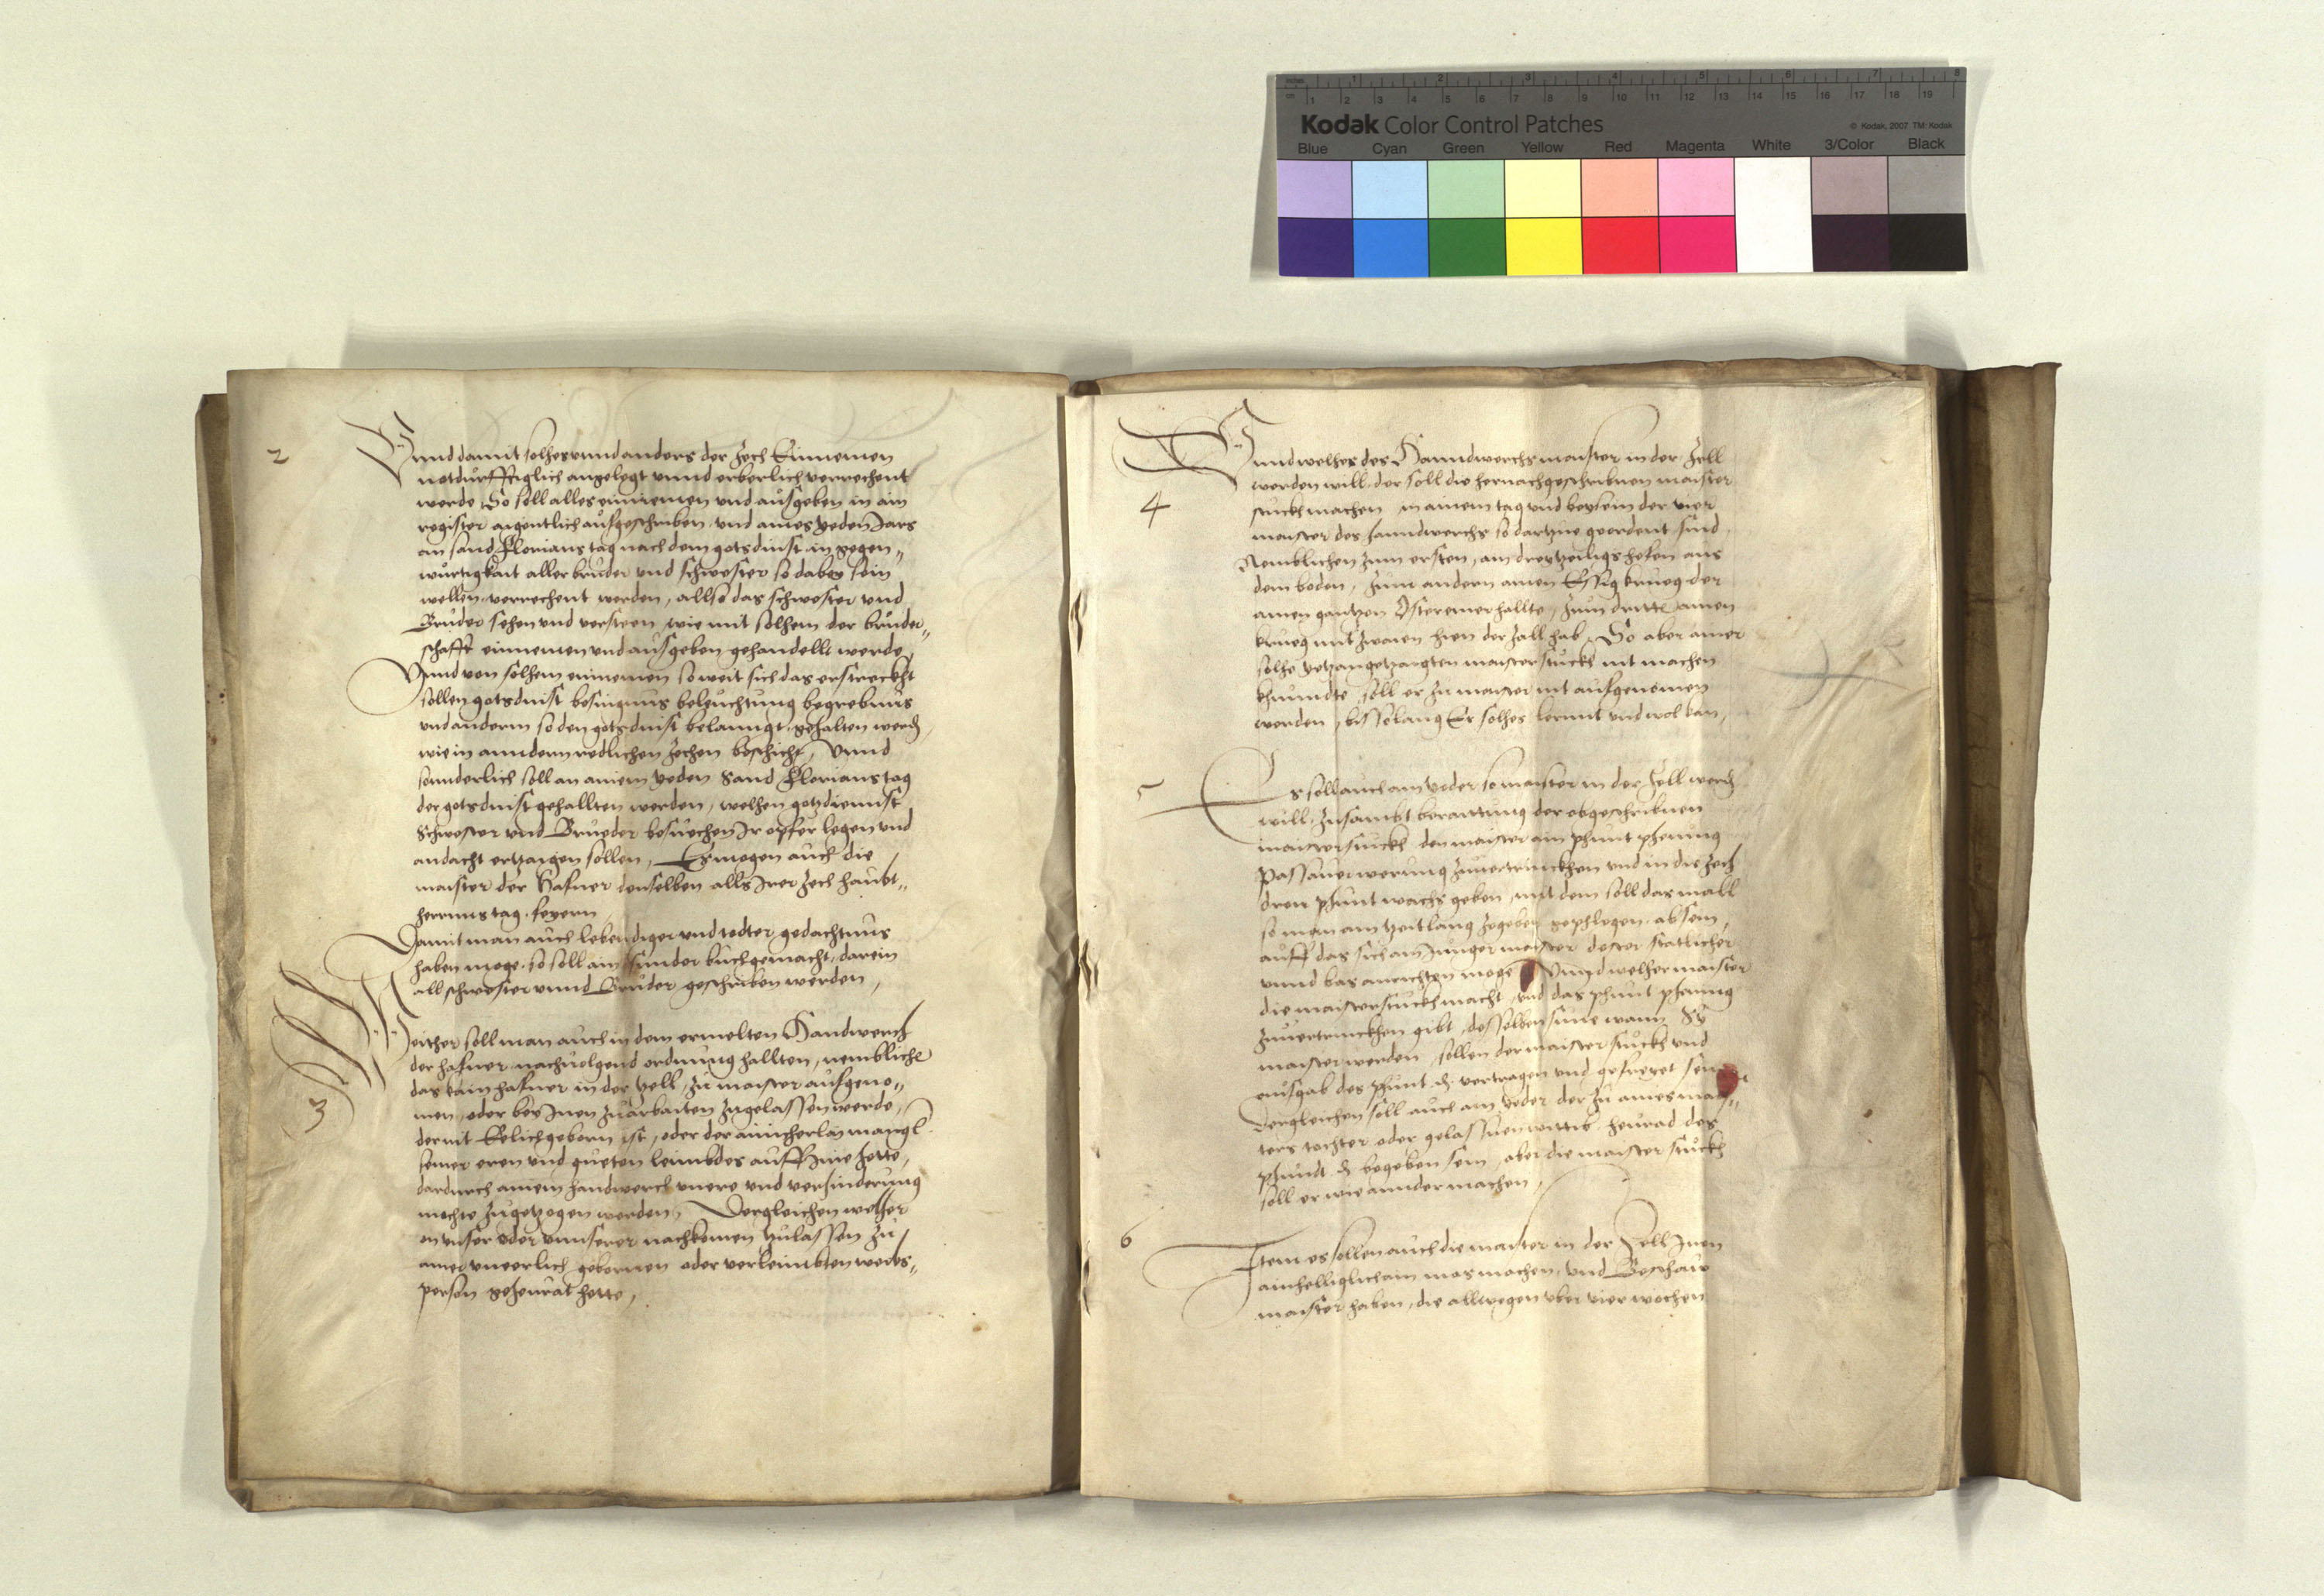 Kodak Color Control Patches
© Kodak, 2007 TM: Kodak
Blue Cyan Green Yellow Red Magenta White 3/Color Black
2
Vnnd damit solhes vnnd anders der Zech Einnemen
notdürfftiglich angelegt vnnd erberlich verrechent
werde, So soll alles einnemen vnd ausgeben in ain
register aigentlich aufgeschriben vnd aines yeden Jars
an sand Florians tag nach dem gotsdinst in gegen„
würtigkait aller brüder vnd schwester so dabey sein
wellen verrechent werden, allso das schwester vnd
Brüder sehen vnd versteen, wie mit solhem der brüder„
schafft einnemen vnd ausgeben gehandellt werde,
Vnnd von solhem einnemen so weit sich das erstreckht
sollen gotsdinst besingnus beleuchtung begrebnus
vnd anderm so den gotsdinst belanngt, gehalten werden
wie in anndern redlichen Zechen beschicht, Vnnd
sonnderlich soll an ainem yeden Sand Florians tag
der gotsdinst gehallten werden, welhen gotzdiennst
Schwester vnd Brueder besuechen Ir opfer legen vnd
andacht ertzaigen sollen, Es mogen auch die
maister der Hafner denselben alls Irer Zech haubt„
herrnns tag feyern
Damit man auch lebendiger vnd todter gedachtnus
haben moge, so soll ain sunder buch gemacht, darein
all schwester vnnd Brüder geschriben werden,
3
Weither soll man auch in dem ermelten Handwerch
der hafner nachuolgend ordnung hallten, nemblichen
das kain hafner in der Zell, zu maister aufgeno„
men, oder bey Inen zuarbaiten zugelassen werde,
der nit Eelich geborn ist, oder der ainicherlay manngl
seiner eren vnd gueten leimbdes auff Ime hette,
dardurch ainem handwerch vnere vnd verhinderung
mochte zugetzogen werden, Dergleichen welher
on vnser oder vnnserer nachkomen zulassen zu
ainer vneerlich gebornen oder verleimbten weibs„
person geheurat hette,
4
Vnnd welher des Hanndwerchs maister in der Zell
werden will, der soll die hernachgeschribnen maister
stuckh machen in ainem tag vnd beysein der vier
maister des hanndwerchs so dartzue geordent sind,
Nemblichen zum ersten, ain dreytzeiligs hefen aus
dem boden, Zum andern ainen Essig krueg der
ainen gantzen Osteremer hallte, Zum dritten ainen
krueg mit zwaien der Zall hab, So aber ainer
solhe yetzangetzaigten maisterstuckh nit machen
khunndte, soll er zu maister nit aufgenomen
werden, bis solang Er solhes lernnt vnd wol kan,
5
Es soll auch ain yeder so maister in der Zell werden
will, zusambt beraittung der obgeschribnen
maisterstuckh, den maister ain phunt phening
Passauer werung zuuertrinckhen vnd in die Zech
drew phunt wachs geben, mit dem soll das mall
so man ain zeit lang zegeben gephlegen ab sein,
auff das sich ain Junger maister dester statlicher
vnnd bas anrichten moge, Vnnd welher maister
die maisterstuckh macht, vnd das phunt phening
zuuertrinckhen gibt, desselben sune wann Sy
maister werden, sollen der maister stuckh vnd
ausgab des phunt ₰ vertragen vnd gefreyet sein
Dergleichen soll auch ain yeder der zu aines mais„
ters tochter oder gelassnen wittib heurad des
phundt ₰ begeben sein, aber die maister stuckh
soll er wie annder machen,
6
Item es sollen auch die maister in der Zell Inen
ainhelliglich ain mas machen, vnd Beschaw
maister haben, die allwegen vber vier wochen